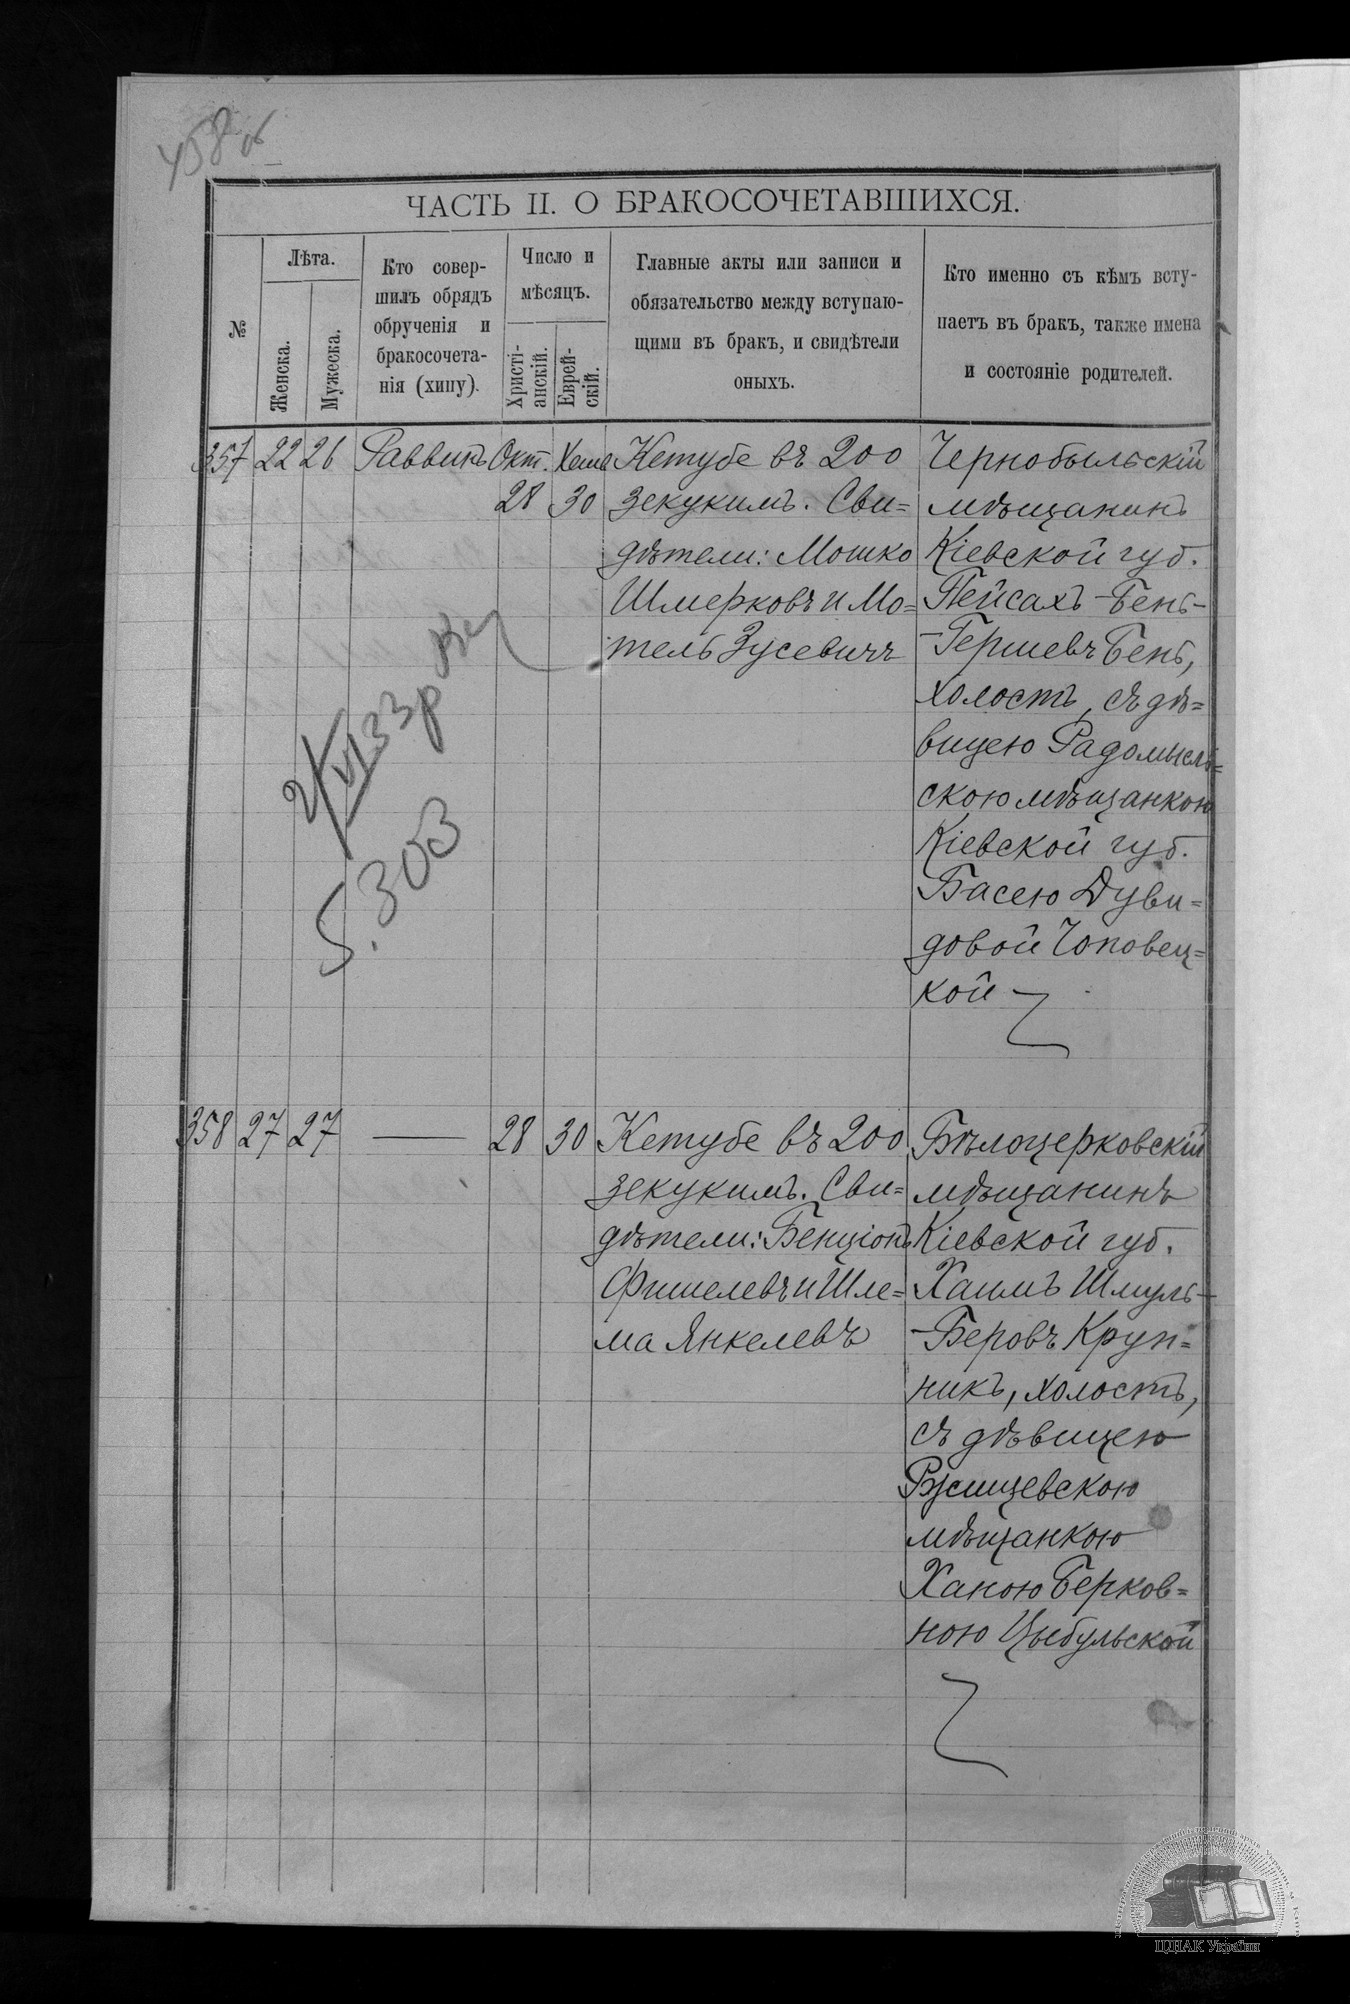 458 об
ЧАСТЬ II. О БРАКОСОЧЕТАВШИХСЯ.
№
Лѣта.
Женска.
Мужеска.
Кто совер-
шилъ обрядъ
обрученія и
бракосочета-
нія (хипу).
Число и
мѣсяцъ.
Христі-
анскій.
Еврей-
скій.
Главные акты или записи и
обязательство между вступаю-
щими въ бракъ, и свидѣтели
оныхъ.
Кто именно съ кѣмъ всту-
паетъ въ бракъ, также имена
и состояніе родителей.
357 22 26 Раввинъ Окт. 28
30
Кетубе въ 200
зекукимъ. Сви=
дѣтели: Мошко
Шмерковъ и Мо=
тель Зусевичъ
Чернобыльскій
мѣщанинъ
Кіевской губ.
Пейсахъ-Бенъ-
-Гершевъ Бенъ,
холостъ, съ дѣ=
вицею Радомысль=
скою мѣщанкою
Кіевской губ.
Басею Дуви=
довой Чоповец=
кой
5.303
358 27 27 — 28 30
Кетубе въ 200
зекукимъ. Сви=
дѣтели: Бенціонъ
Фишелевъ и Шле=
ма Янкелевъ
Бѣлоцерковскій
мѣщанинъ
Кіевской губ.
Хаимъ Шмуль-
-Беровъ Круп=
никъ, холостъ,
съ дѣвицею
мѣщанкою
Ханою Берков=
ною Цыбульской
ЦДІАК України